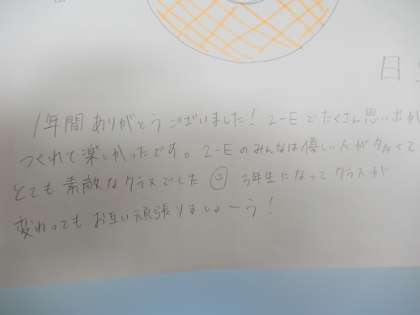 日
1年間ありがとうございました！ 2-Eでたくさん思い出が
つくれて楽しかったです。2-Eのみんなは優しい人が多くて
とても素敵なクラスでした☺ 3年生になってクラスが
変わってもお互い頑張りましょーう！